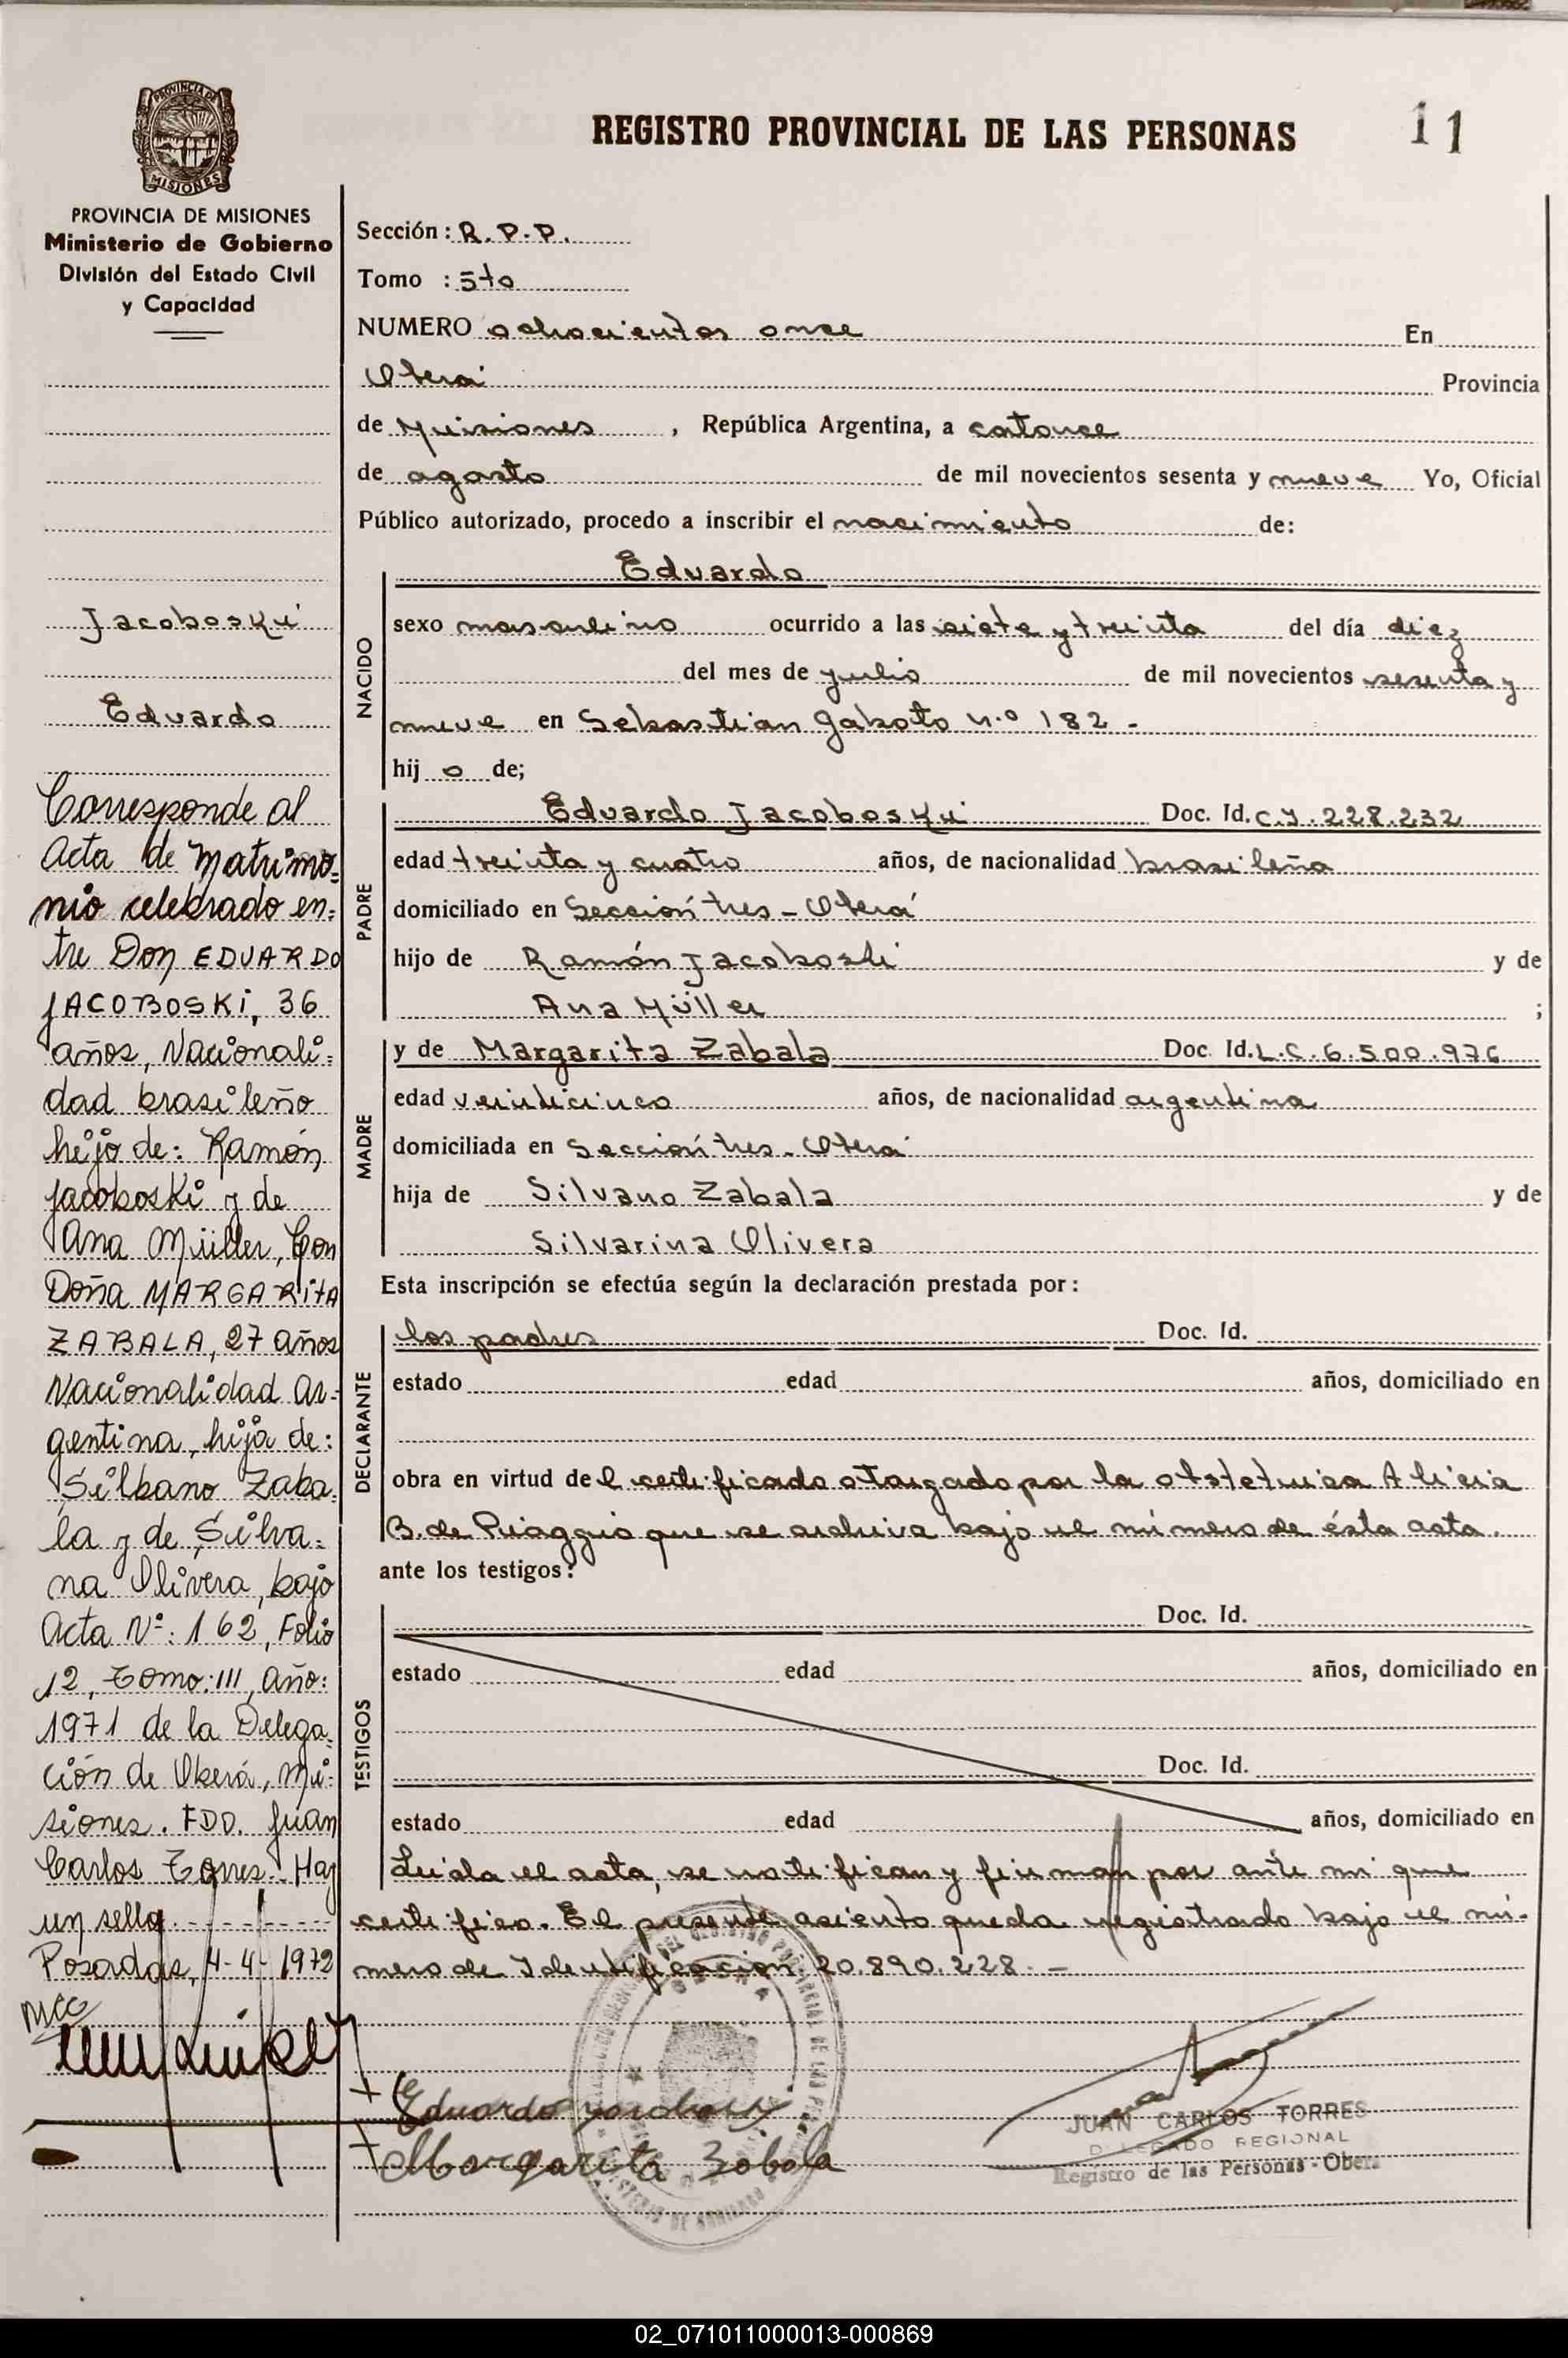 REGISTRO PROVINCIAL DE LAS PERSONAS
11
PROVINCIA DE MISIONES
MISIONES
PROVINCIA DE MISIONES
Ministerio de Gobierno
División del Estado Civil
y Capacidad
Jacoboski
Eduardo
Corresponde al
Acta de Matrimo=
nio celebrado en=
tre Don EDUARDO
JACOBOSKI, 36
años, Nacionali=
dad brasileño
hijo de: Ramón
Jacoboski y de
Ana Müller, Con
Doña MARGARITA
ZABALA, 27 años
Nacionalidad Ar-
gentina, hija de:
Silbano Zaba-
la y de Silva=
na Olivera, bajo
Acta Nº: 162, Folio
12, Tomo: III, Año:
1971 de la Delega-
ción de Oberá, Mi=
siones. FDO. Juan
Carlos Torres. Hay
un sello.
Posadas, 4-4-1972
mcc
Sección: R.P.P.
Tomo : 5to
NUMERO ochocientos once En
Oberá Provincia
de Misiones, República Argentina, a catorce
de agosto de mil novecientos sesenta y nueve Yo, Oficial
Público autorizado, procedo a inscribir el nacimiento de:
NACIDO
Eduardo
sexo masculino ocurrido a las siete y treinta del día diez
del mes de julio de mil novecientos sesenta y
nueve en Sebastian Gaboto n.o 182 -
hij o de;
PADRE
Eduardo Jacoboski Doc. Id. C.I. 228.232
edad treinta y cuatro años, de nacionalidad brasileña
domiciliado en Sección tres - Oberá
hijo de Ramón Jacoboski y de
Ana Müller ;
MADRE
y de Margarita Zabala Doc. Id. L.C. 6.500.976
edad veinticinco años, de nacionalidad argentina
domiciliada en Sección tres - Oberá
hija de Silvano Zabala y de
Silvarina Olivera
Esta inscripción se efectúa según la declaración prestada por:
DECLARANTE
los padres Doc. Id.
estado edad años, domiciliado en
obra en virtud de l certificado otorgado por la obstetrica Alicia
B. de Piaggio que se archiva bajo el número de ésta acta.
ante los testigos:
TESTIGOS
Doc. Id.
estado edad años, domiciliado en
Doc. Id.
estado edad años, domiciliado en
Leida el acta, se notifican y firman por ante mi que
certifico. El presente asiento queda registrado bajo el nú-
mero de Identificación 20.890.228. -
Eduardo
Margarita Zabala
JUAN CARLOS TORRES
DELEGADO REGIONAL
Registro de las Personas - Oberá
02_071011000013-000869